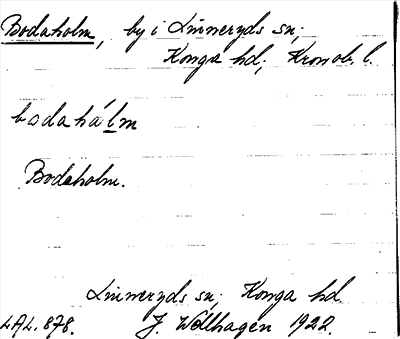 Bodaholm, by i Linneryds sn;
Konga hd; Kronob. l.
bodahálm
Bodaholm.
Linneryds sn; Konga hd.
LAL. 878. J. Wollhagen 1922.